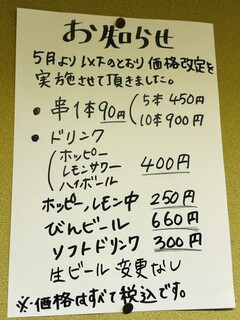 お知らせ
5月より以下のとおり価格改定を
実施させて頂きました。
・串1本90円(5本450円
10本900円
・ドリンク
(ホッピー
レモンサワー 400円
ハイボール
ホッピー、レモン中 250円
びんビール 660円
ソフトドリンク 300円
生ビール変更なし
※価格はすべて税込です。